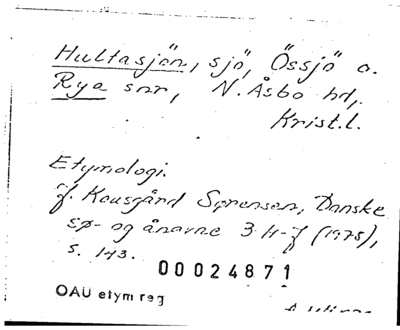 Hultasjön, sjö, Össjö o.
Rya snr, N. Åsbo hd,
Krist.l.
Etymologi.
Jf. Kousgård Sørensen, Danske
sø- og ånavne 3 H-J (1978),
s. 143.
00024871
OAU etym reg